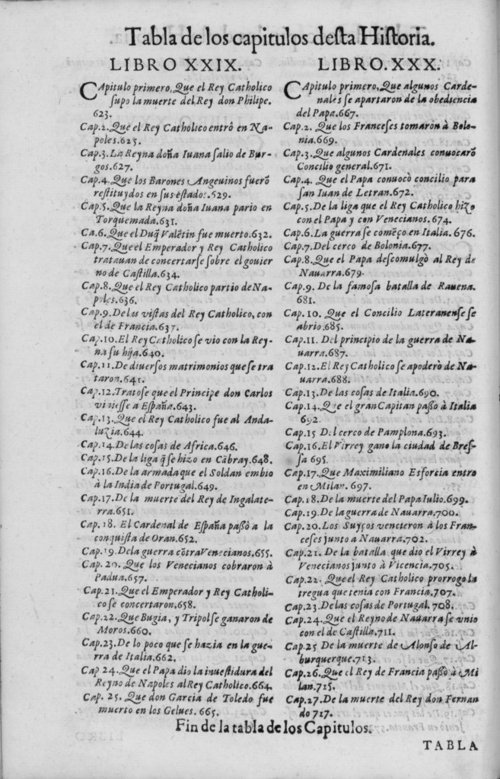 Tabla de los capitulos desta Historia.
LIBRO XXIX.
CApitulo primero, Que el Rey Catholico
supo la muerte del Rey don Philipe.
623.
Cap.2. Que el Rey Catholico entrò en Na-
poles.625.
Cap.3. La Reyna doña Iuana salio de Bur-
gos.627.
Cap.4. Que los Barones Angeuinos fuerõ
restituydos en sus estados.529.
Cap.5. Que la Reyna doña Iuana pario en
Torquemada.631.
Ca.6. Que el Duq̃ Valẽtin fue muerto.632.
Cap.7. Que el Emperador y Rey Catholico
tratauan de concertarse sobre el gouier
no de Castilla.634.
Cap.8. Que el Rey Catholico partio de Na-
poles.636.
Cap.9. De las vistas del Rey Catholico, con
el de Francia.637.
Cap.10. El Rey Catholico se vio con la Rey-
na su hija.640.
Cap.11. De diuersos matrimonios que se tra
taron.641.
Cap.12. Tratose que el Principe don Carlos
viniesse a España.643.
Cap.13. Que el Rey Catholico fue al Anda-
luzia.644.
Cap.14. De las cosas de Africa.646.
Cap.15. De la liga q̃ se hizo en Cãbray.648.
Cap.16. De la armada que el Soldan embio
à la India de Portugal.649.
Cap.17. De la muerte del Rey de Ingalate-
rra.651.
Cap.18. El Cardenal de España passò a la
conquista de Oran.652.
Cap.19. De la guerra cõtra Venecianos.655.
Cap.20. Que los Venecianos cobraron à
Padua.657.
Cap.21. Que el Emperador y Rey Catholi-
co se concertaron.658.
Cap.22. Que Bugia, y Tripol se ganaron de
Moros.660.
Cap.23. De lo poco que se hazia en la gue-
rra de Italia.662.
Cap 24. Que el Papa dio la inuestidura del
Reyno de Napoles al Rey Catholico.664.
Cap. 25. Que don Garcia de Toledo fue
muerto en los Gelues. 665.
LIBRO.XXX.
CApitulo primero, Que algunos Carde-
nales se apartaron de la obediencia
del Papa.667.
Cap.2. Que los Franceses tomaron à Bolo-
nia.669.
Cap.3. Que algunos Cardenales conuocarõ
Concilio general.671.
Cap.4. Que el Papa conuocò concilio para
san Iuan de Letran.672.
Cap.5. De la liga que el Rey Catholico hizo
con el Papa y con Venecianos. 674.
Cap.6. La guerra se comẽço en Italia. 676.
Cap.7. Del cerco de Bolonia.677.
Cap.8. Que el Papa descomulgò al Rey de
Nauarra.679.
Cap.9. De la famosa batalla de Rauena.
681.
Cap.10. Que el Concilio Lateranense se
abrio.685.
Cap.11. Del principio de la guerra de Na-
uarra.687.
Cap.12. El Rey Catholico se apoderò de Na-
uarra.688.
Cap.13. De las cosas de Italia.690.
Cap.14. Que el gran Capitan passò à Italia
692.
Cap.15 Del cerco de Pamplona.693.
Cap.16. El Virrey gano la ciudad de Bres-
sa 695.
Cap.17. Que Maximiliano Esforcia entro
en Milan. 697.
Cap.18. De la muerte del Papa Iulio.699.
Cap.19. De la guerra de Nauarra.700.
Cap.20. Los Suyços vencieron à los Fran-
ceses junto a Nauarra.702.
Cap.21. De la batalla que dio el Virrey à
Venecianos junto à Vicencia.705.
Cap.22. Que el Rey Catholico prorrogo la
tregua que tenia con Francia.707.
Cap.23. De las cosas de Portugal. 708.
Cap.24. Que el Reyno de Nauarra se vnio
con el de Castilla.711.
Cap.25 De la muerte de Alonso de Al-
burquerque.713.
Cap.26. Que el Rey de Francia passò à Mi
lan.715.
Cap.27. De la muerte del Rey don Fernan
do 717.
Fin de la tabla de los Capitulos.
TABLA